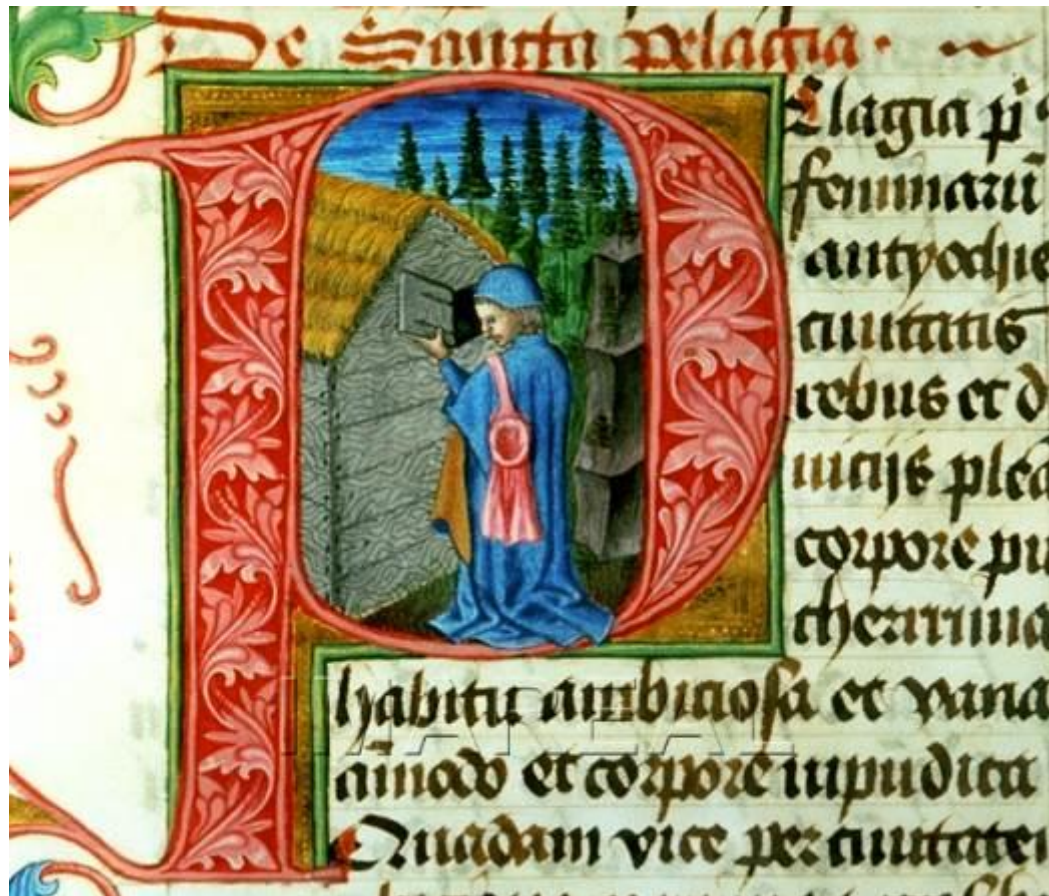 De Sancta pelagia ·
P
Elagia
feminarū
antyochie
ciuitatis
rebus et d
uicijs
corpore pu
cherrima
habitu ambiciosa et vana
et corpore inpudica
Quadam vice per ciuitate
IMAREAL